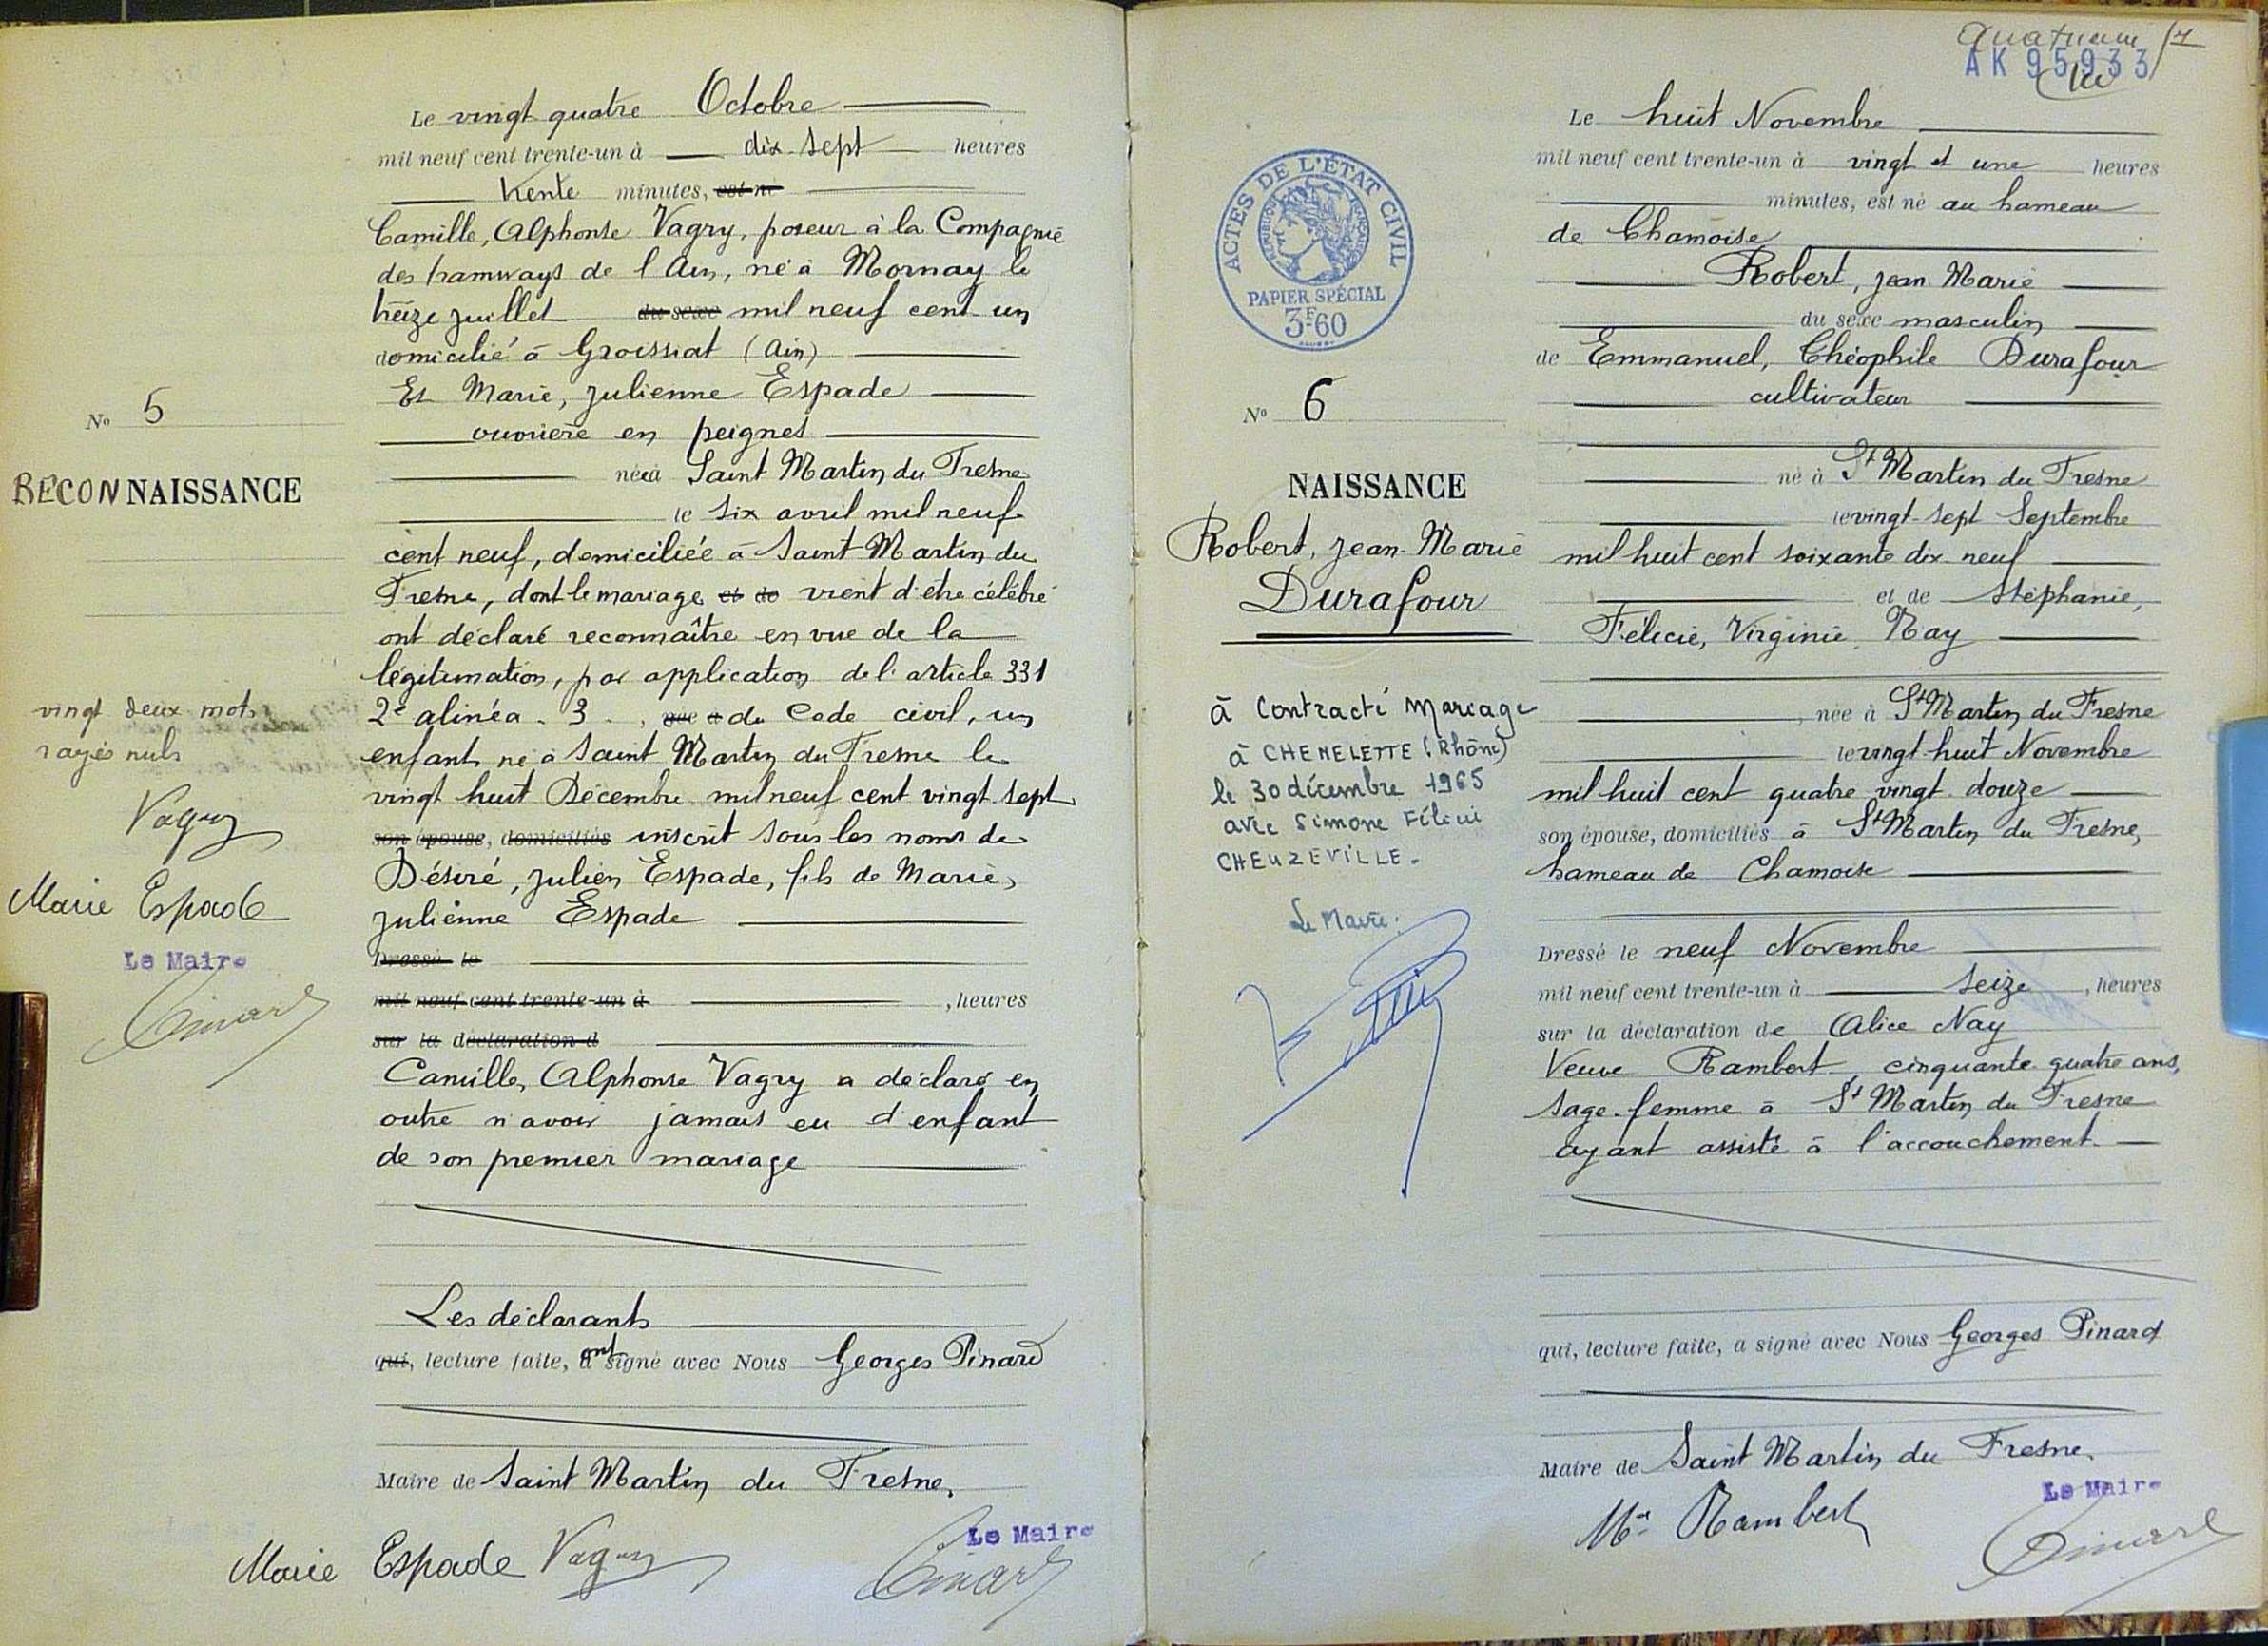 Le vingt quatre Octobre
mil neuf cent trente-un à dix-sept heures
trente minutes, est né
Camille, Alphonse Vagry, poseur à la Compagnie
des tramways de l'Ain, né à Mornay le
treize juillet du sexe mil neuf cent un
domicilié à Groissiat (Ain)
Et Marie, Julienne Espade
ouvrière en peignes
née à Saint Martin du Fresne
le six avril mil neuf
cent neuf, domiciliée à Saint Martin du
Fresne, dont le mariage et de vient d'etre célébré
ont déclaré reconnaître en vue de la
légitimation, par application de l'article 331
2e alinéa - 3 du Code civil, un
enfant né à Saint Martin du Fresne le
vingt huit Décembre mil neuf cent vingt-sept
son épouse, domiciliés inscrit sous les noms de
Désiré, Julien Espade, fils de Marie,
Julienne Espade
Dressé le
mil neuf cent trente-un à , heures
sur la déclaration d
Camille, Alphonse Vagry a déclaré en
outre n'avoir jamais eu d'enfant
de son premier mariage
Les déclarants
qui, lecture faite, ont signé avec Nous Georges Pinard
Maire de Saint Martin du Fresne,
Marie Espade Vagry
Le Maire
Pinard
No 5
RECONNAISSANCE
vingt deux mots
rayés nuls
Vagry
Marie Espade
Le Maire
Pinard
AK 95933
Le huit Novembre
mil neuf cent trente-un à vingt et une heures
minutes, est né au hameau
de Chamoise
Robert, Jean Marie
du sexe masculin
de Emmanuel, Théophile Durafour
cultivateur
né à St Martin du Fresne
le vingt-sept Septembre
mil huit cent soixante dix neuf
et de Stéphanie,
Félicie, Virginie, Nay
, née à St Martin du Fresne
le vingt-huit Novembre
mil huit cent quatre vingt douze
son épouse, domiciliés à St Martin du Fresne,
hameau de Chamoise
Dressé le neuf Novembre
mil neuf cent trente-un à seize , heures
sur la déclaration de Alice Nay
Veuve Rambert, cinquante quatre ans,
sage-femme à St Martin du Fresne
ayant assisté à l'accouchement.
qui, lecture faite, a signé avec Nous Georges Pinard
Maire de Saint Martin du Fresne.
Rambert
Le Maire
Pinard
ACTES DE L'ÉTAT CIVIL
RÉPUBLIQUE FRANÇAISE
PAPIER SPÉCIAL
3F60
No 6
NAISSANCE
Robert, Jean-Marie
Durafour
à Contracté Mariage
à CHENELETTE (Rhône)
le 30 décembre 1965
avec Simone Félicie
CHEUZEVILLE.
Le Maire.